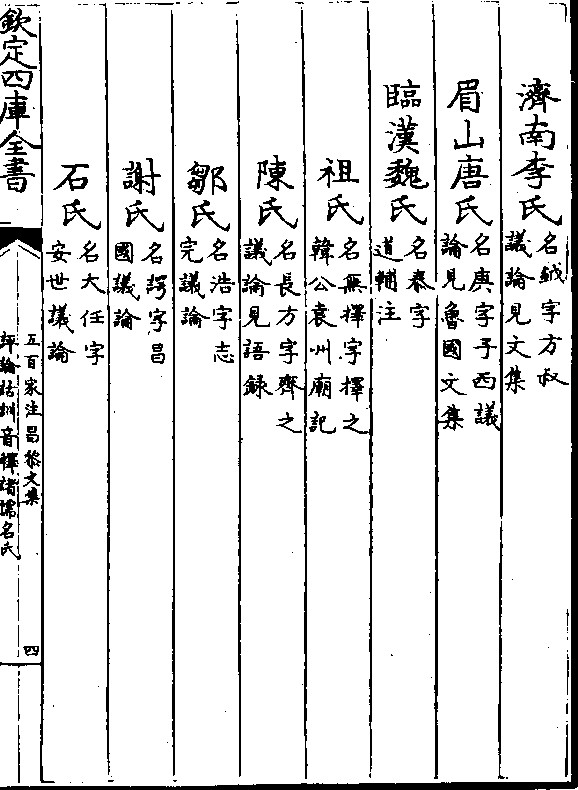 濟南李氏名㦸字方叔議論見文集
眉山唐氏名庚字子西議論見魯國文集
臨漢魏氏名泰字道輔注
祖氏名無擇字擇之韓公袁州廟記
陳氏名長方字齊之議論見語録
鄒氏名浩字志完議論
謝氏名諤字昌國議論
石氏名大任字安世議論
欽定四庫全書
五百家注昌黎文集
評論詁訓音釋諸儒名氏
四